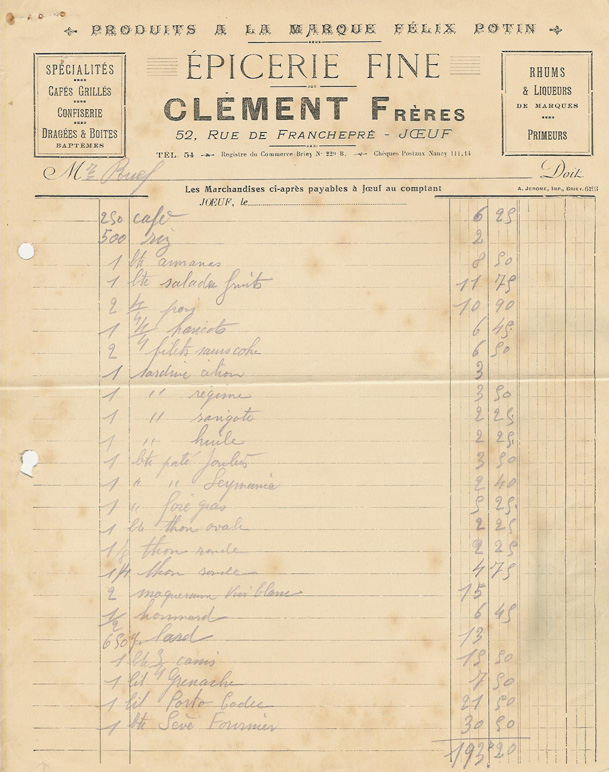 PRODUITS A LA MARQUE FÉLIX POTIN
SPÉCIALITÉS
CAFÉS GRILLÉS
CONFISERIE
DRAGÉES & BOITES
BAPTÊMES
ÉPICERIE FINE
CLÉMENT FRÈRES
52, RUE DE FRANCHEPRÉ - JŒUF
TÉL. 54 Registre du Commerce Briey N° 229 B. Chèques Postaux Nancy 111,14
RHUMS
& LIQUEURS
DE MARQUES
PRIMEURS
M Ruef Doit
Les Marchandises ci-après payables à Jœuf au comptant
A. JEROME, IMP., BRIEY. 6293
JŒUF, le
250 café 6 25
500 riz 2
1 bte ananas 8 50
1 bte salade fruits 11 75
2 4/4 pois 10 90
1 4/4 haricots 6 45
2 filets 6 50
1 sardine 3
1 " régime 3 50
1 " 2 25
1 " huile 2 25
1 bte paté 3 50
1 " " 2 40
1 " foie gras 5 25
1 bte thon ovale 2 25
1/8 thon ronde 2 25
1/4 thon ronde 4 75
2 maquereaux vin blanc 15
1/2 hommard 6 45
650 gr lard 13
1 bte 15 50
1 lit Grenache 7 50
1 lit Porto 21 50
1 bte Sève Fournier 30 50
193 20